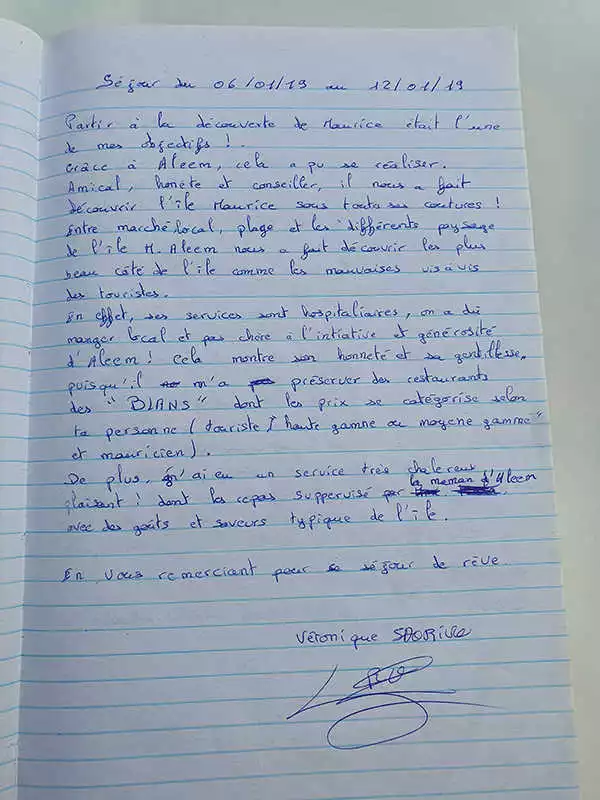 Séjour du 06/01/19 au 12/01/19
Partir à la découverte de Maurice était l'une
de mes objectifs !.
Grâce à Aleem, cela a pu se réaliser.
Amical, honéte et conseiller, il nous a fait
découvrir l'île Maurice sous toute ses coutures !
Entre marché local, plage et les différents paysage
de l'île M. Aleem nous a fait découvrir les plus
beau côté de l'île comme les mauvaises vis à vis
des touristes.
En effet, ses services sont hospitaliaires, on a dû
manger local et pas chère à l'intiative et générosité
d'Aleem ! Cela montre son honneté et sa gentillesse,
puisqu'il m'a préserver des restaurants
des "BLANS" dont les prix se catégorise selon
ta personne (touriste / haute gamne ou moyene gamme"
et mauricien).
De plus, j'ai eu un service très chalereux
plaisant ! dont les repas suppervisé par la maman d'Aleem
avec des goûts et saveurs typique de l'île.
En vous remerciant pour se séjour de rêve.
Véronique